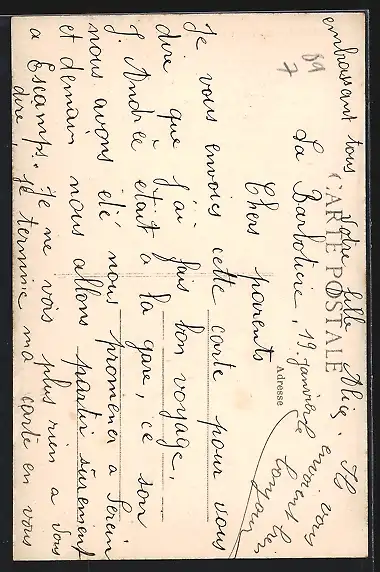 La Barbotière, 19 janvier
Chers parents
Je vous envois cette carte pour vous
dire que j'ai fais bon voyage.
J. Andrée était à la gare, ce soir
nous avons été nous promener a Serein
et demain nous allons partir sûrement
a Escamps. Je ne vois plus rien a vous
dire, je termine ma carte en vous
embrassant tous Votre fille Alix.
CARTE POSTALE
Adresse
89
7